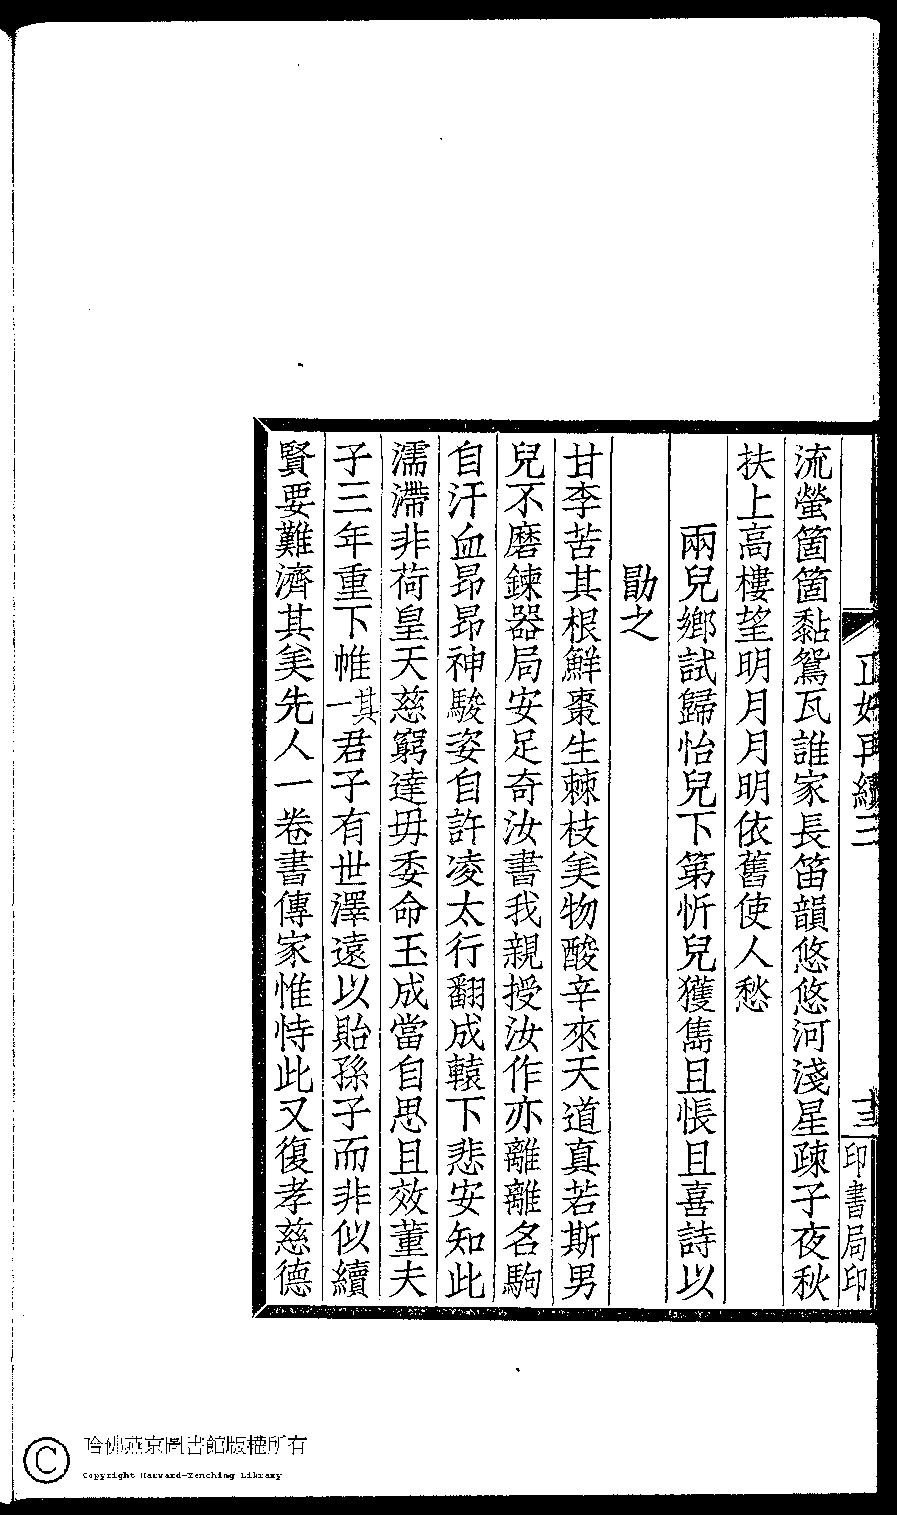 正始再續三
十三
印書局印
流螢箇箇黏鴛瓦誰家長笛韻悠悠河淺星疎子夜秋
扶上高樓望明月月明依舊使人愁
兩兒鄉試歸怡兒下第忻兒獲雋且悵且喜詩以
勖之
甘李苦其根鮮棗生棘枝美物酸辛來天道真若斯男
兒不磨鍊器局安足奇汝書我親授汝作亦離離名駒
自汗血昂昂神駿姿自許凌太行翻成轅下悲安知此
濡滯非荷皇天慈窮達毋委命玉成當自思且效董夫
子三年重下帷其一君子有世澤遠以貽孫子而非似續
賢要難濟其美先人一卷書傳家惟恃此又復孝慈德
哈佛燕京圖書館版權所有
Copyright Harvard-Yenching Library